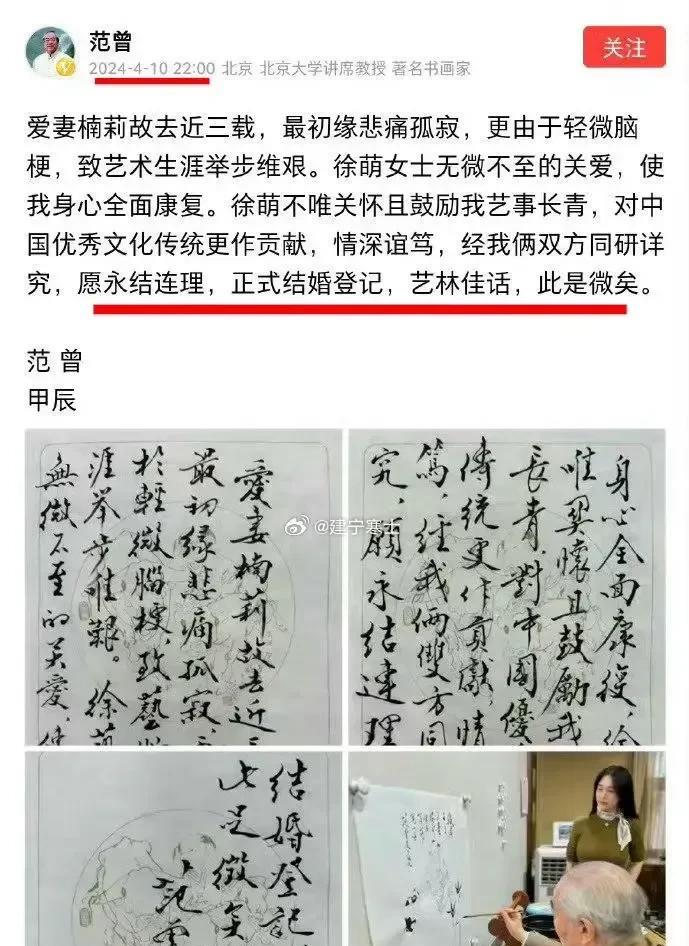 范曾
关注
2024-4-10 22:00 北京 北京大学讲席教授 著名书画家
爱妻楠莉故去近三载，最初缘悲痛孤寂，更由于轻微脑
梗，致艺术生涯举步维艰。徐萌女士无微不至的关爱，使
我身心全面康复。徐萌不唯关怀且鼓励我艺事长青，对中
国优秀文化传统更作贡献，情深谊笃，经我俩双方同研详
究，愿永结连理，正式结婚登记，艺林佳话，此是微矣。
范 曾
甲辰
愛妻楠莉故去近三
最初緣悲痛孤寂，
於輕微腦梗，致藝
涯举步唯艱。徐萌
無微不至的关愛，使
@建宁寒士
身心全面康復，徐
唯関懷且鼓勵我
長青，對中國優
傳統更作貢獻，情
篤，經我俩雙方同
究，願永结連理
结婚登记，
此足微矣
范曾